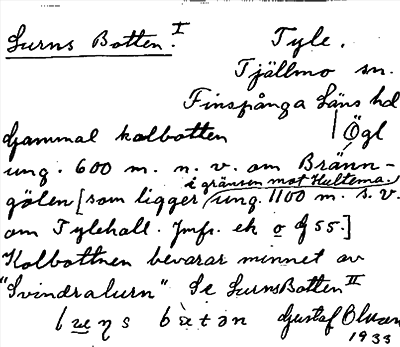 Lurns Botten. I Tyle.
Tjällmo sn.
Finspånga Läns hd
Gammal kolbotten | Ögl
ung. 600 m. n. v. om Bränn-
i gränsen mot Hultema.
gölen [som ligger ung. 1100 m. s. v.
om Tylehall. Jmfr. ek o G 55.]
Kolbottnen bevarar minnet av
"Svindralurn" Se LurnsBotten II
Gustaf Olsson
1933